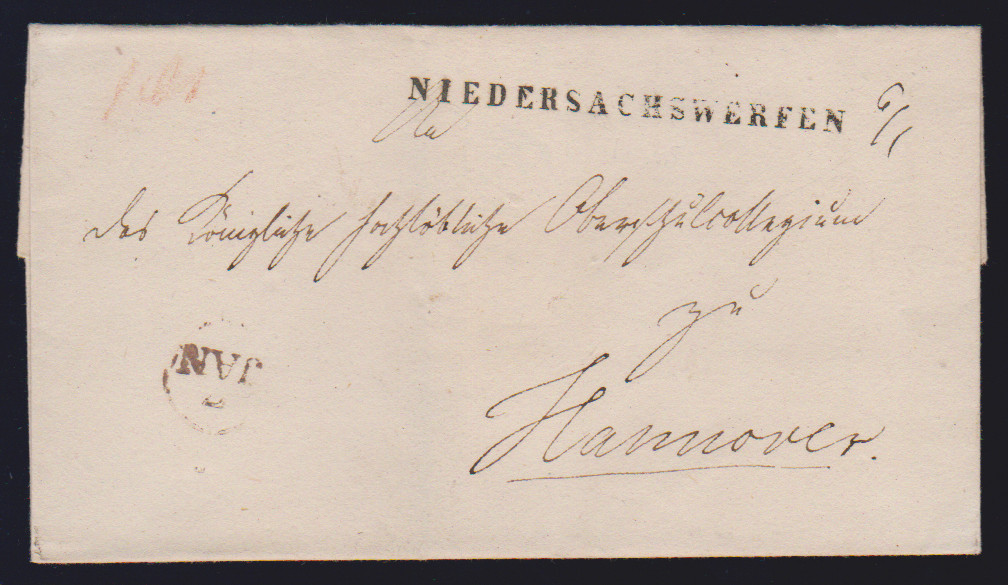 NIEDERSACHSWERFEN 6/1
An
das Königliche hochlöbliche Oberschulcollegium
zu
Hannover.
JAN